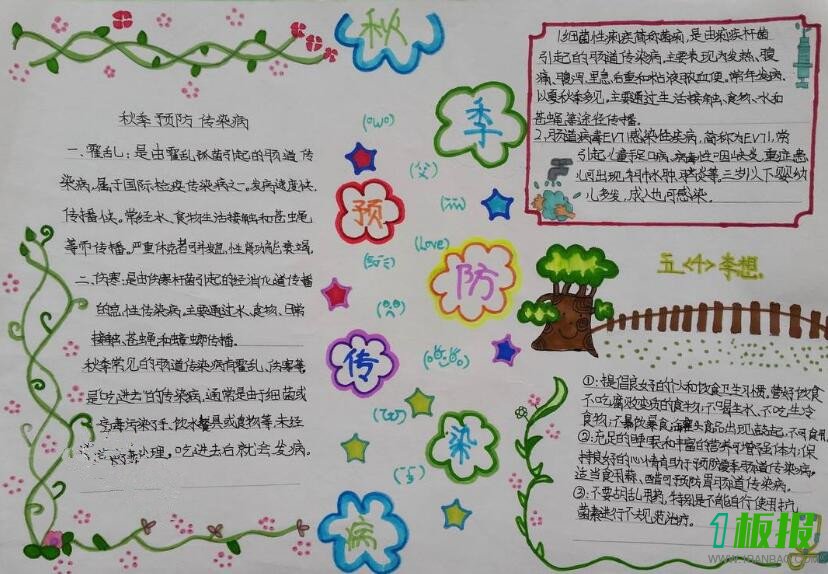 秋
季
预
防
传
染
病
秋季预防传染病
一、霍乱：是由霍乱弧菌引起的肠道传
染病，属于国际检疫传染病之一。发病速度快，
传播快。常经水、食物生活接触和苍蝇
等而传播。严重休克者可并发急性肾功能衰竭。
二、伤寒：是由伤寒杆菌引起的经消化道传播
的急性传染病，主要通过水、食物、日常
接触、苍蝇和蟑螂传播。
秋季常见的肠道传染病有霍乱、伤寒等
是“吃进去”的传染病，通常是由于细菌或
病毒污染了手、饮水、餐具或食物等，未经
处理。吃进去后就会发病。
(OWO)
(父)
(Love)
1、细菌性痢疾简称菌痢，是由痢疾杆菌
引起的肠道传染病，主要表现为发热、腹
痛、腹泻、里急后重和粘液脓血便，常年发病，
以夏秋季多见，主要通过生活接触、食物、水和
苍蝇等途径传播。
2、肠道病毒EV71感染性疾病，简称为EV71，常
引起儿童手足口病、病毒性咽峡炎，重症患
儿可出现肺水肿、脑炎等。三岁以下婴幼
儿多发，成人也可感染。
五〈4〉李想
①：提倡良好的个人和饮食卫生习惯。营好饮食
不吃腐败变质的食物；不喝生水、不吃生冷
食物；不暴饮暴食，
②：充足的睡眠和丰富的营养可增强体力；保
持良好的心情有助于预防夏季肠道传染病。
适当食用蒜、醋可预防胃肠道传染病。
③：不要胡乱用药，特别是不能自行使用抗
菌素进行不规范治疗。
1板报
WWW.1BANBAO.COM